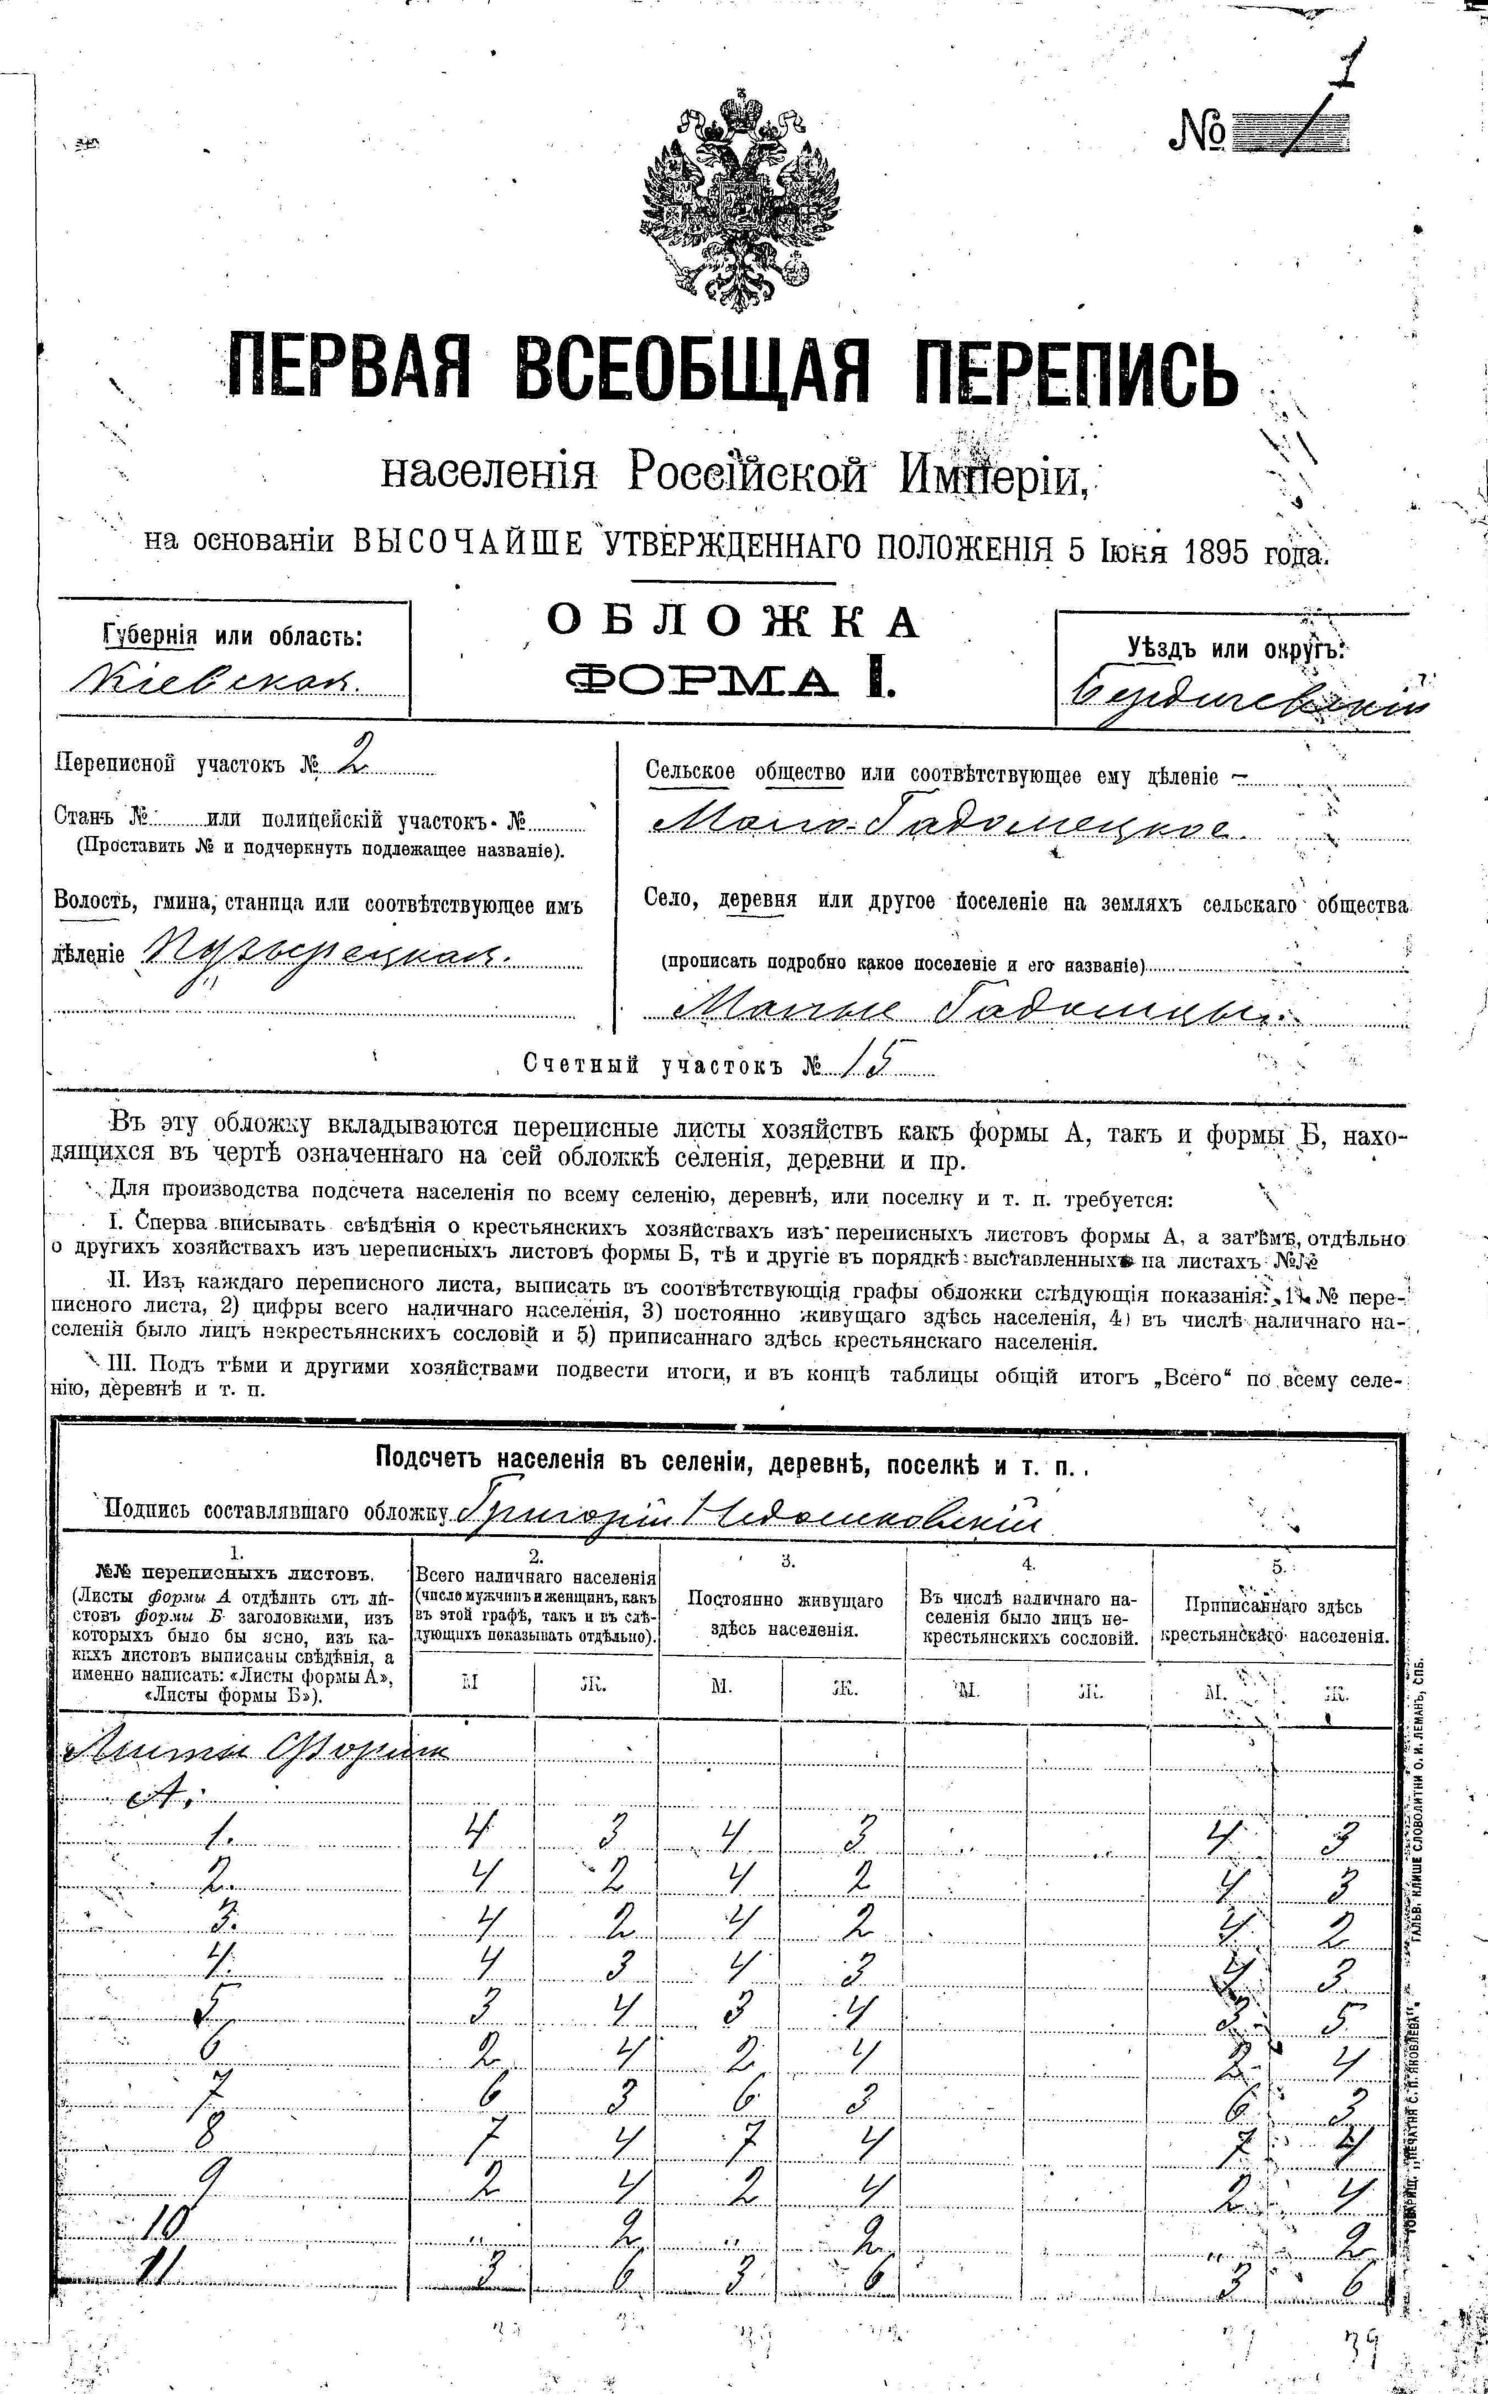 1
№ 1
ПЕРВАЯ ВСЕОБЩАЯ ПЕРЕПИСЬ
населенія Россійской Имперіи,
на основаніи ВЫСОЧАЙШЕ УТВЕРЖДЕННАГО ПОЛОЖЕНІЯ 5 Іюня 1895 года.
ОБЛОЖКА
ФОРМА I.
Губернія или область:
Кіевская.
Уѣздъ или округъ:
Бердичевскій
Переписной участокъ № 2
Станъ № или полицейскій участокъ № 
(Проставить № и подчеркнуть подлежащее названіе).
Волость, гмина, станица или соотвѣтствующее имъ
дѣленіе Пузырецкая.
Сельское общество или соотвѣтствующее ему дѣленіе —
Мало-Гадомецкое.
Село, деревня или другое поселеніе на земляхъ сельскаго общества
(прописать подробно какое поселеніе и его названіе)
Малые Гадомцы.
Счетный участокъ № 15
Въ эту обложку вкладываются переписные листы хозяйствъ какъ формы А, такъ и формы Б, нахо-
дящихся въ чертѣ означеннаго на сей обложкѣ селенія, деревни и пр.
Для производства подсчета населенія по всему селенію, деревнѣ, или поселку и т. п. требуется:
I. Сперва вписывать свѣдѣнія о крестьянскихъ хозяйствахъ изъ переписныхъ листовъ формы А, а затѣмъ, отдѣльно
о другихъ хозяйствахъ изъ переписныхъ листовъ формы Б, тѣ и другіе въ порядкѣ выставленныхъ на листахъ №№
II. Изъ каждаго переписного листа, выписать въ соотвѣтствующія графы обложки слѣдующія показанія: 1) № пере-
писного листа, 2) цифры всего наличнаго населенія, 3) постоянно живущаго здѣсь населенія, 4) въ числѣ наличнаго на-
селенія было лицъ некрестьянскихъ сословій и 5) приписаннаго здѣсь крестьянскаго населенія.
III. Подъ тѣми и другими хозяйствами подвести итоги, и въ концѣ таблицы общій итогъ „Всего“ по всему селе-
нію, деревнѣ и т. п.
Подсчетъ населенія въ селеніи, деревнѣ, поселкѣ и т. п.
Подпись составлявшаго обложку Григорій Недошковскій
1.
№№ переписныхъ листовъ.
(Листы формы А отдѣлить отъ ли-
стовъ формы Б заголовками, изъ
которыхъ было бы ясно, изъ ка-
кихъ листовъ выписаны свѣдѣнія, а
именно написать: «Листы формы А»,
«Листы формы Б»).
2.
Всего наличнаго населенія
(число мужчинъ и женщинъ, какъ
въ этой графѣ, такъ и въ слѣ-
дующихъ показывать отдѣльно).
М Ж.
3.
Постоянно живущаго
здѣсь населенія.
М. Ж.
4.
Въ числѣ наличнаго на-
селенія было лицъ не-
крестьянскихъ сословій.
М. Ж.
5.
Приписаннаго здѣсь
крестьянскаго населенія.
М. Ж.
Листы Формы
А.
1. 4 3 4 3 4 3
2. 4 2 4 2 4 3
3. 4 2 4 2 4 2
4. 4 3 4 3 4 3
5 3 4 3 4 3 5
6 2 4 2 4 2 4
7 6 3 6 3 6 3
8 7 4 7 4 7 4
9 2 4 2 4 2 4
10 " 2 " 2 " 2
11 3 6 3 6 3 6
39
ГАЛЬВ. КЛИШЕ СЛОВОЛИТНИ О. И. ЛЕМАНЪ, СПБ.
ТОВАРИЩ. „ПЕЧАТНЯ С. П. ЯКОВЛЕВА“.